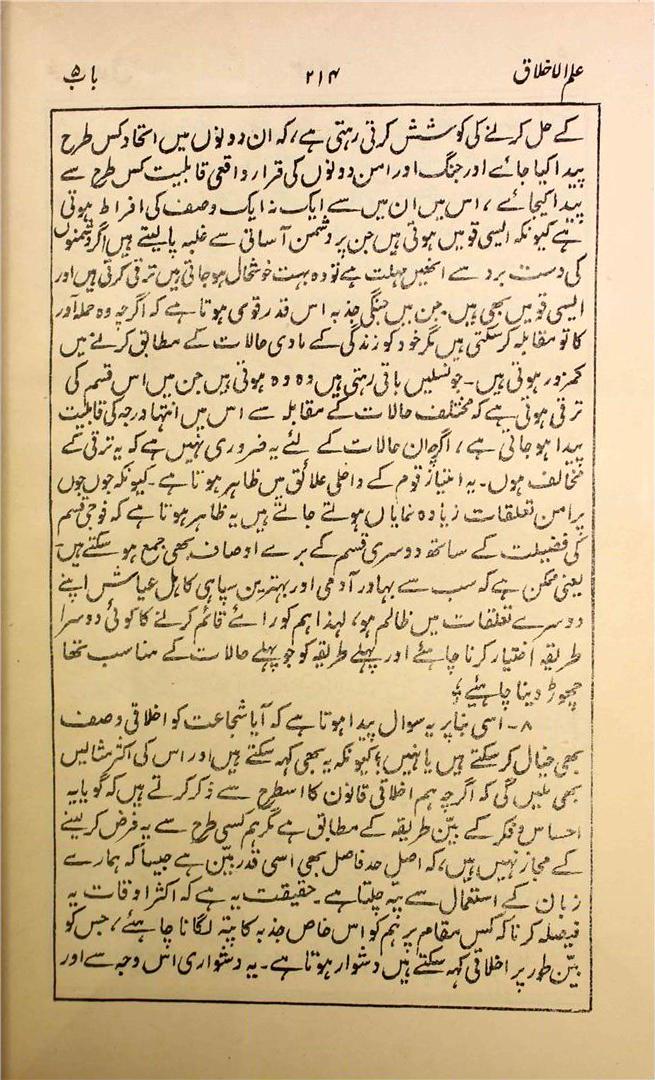 علم الاخلاق ۲۱۴ باب ۵
کے حل کرنے کی کوشش کرتی رہتی ہے، کہ ان دونوں میں اتحاد کس طرح
پیدا کیا جائے اور جنگ اور امن دونوں کی قرار واقعی قابلیت کس طرح سے
پیدا کیجائے، اس میں ان میں سے ایک نہ ایک وصف کی افراط ہوتی
ہے کیونکہ ایسی قومیں ہوتی ہیں جن پر دشمن آسانی سے غلبہ پالیتے ہیں اگر دشمنوں
کی دست برد سے انھیں مہلت ہے تو وہ بہت خوشحال ہو جاتی ہیں ترقی کرتی ہیں اور
ایسی قومیں بھی ہیں۔ جن میں جنگی جذبہ اس قدر قوی ہوتا ہے کہ اگرچہ وہ حملہ آور
کا تو مقابلہ کر سکتی ہیں مگر خود کو زندگی کے مادی حالات کے مطابق کرنے میں
کمزور ہوتی ہیں۔ جو نسلیں باقی رہتی ہیں وہ وہ ہوتی ہیں جن میں اس قسم کی
ترقی ہوتی ہے کہ مختلف حالات کے مقابلہ سے اس میں انتہا درجہ کی قابلیت
پیدا ہو جاتی ہے، اگرچہ ان حالات کے لئے یہ ضروری نہیں ہے کہ یہ ترقی کے
مخالف ہوں۔ یہ امتیاز قوم کے داخلی علائق میں ظاہر ہوتا ہے۔ کیونکہ جوں جوں
پرامن تعلقات زیادہ نمایاں ہوتے جاتے ہیں یہ ظاہر ہوتا ہے کہ فوجی قسم
کی فضیلت کے ساتھ دوسری قسم کے برے اوصاف بھی جمع ہو سکتے ہیں۔
یعنی ممکن ہے کہ سب سے بہادر آدمی اور بہترین سپاہی کاہل عیاش اپنے
دوسرے تعلقات میں ظالم ہو، لہذا ہم کو رائے قائم کرنے کا کوئی دوسرا
طریقہ اختیار کرنا چاہئے اور پہلے طریقہ کو جو پہلے حالات کے مناسب تھا
چھوڑ دینا چاہیئے
۸۔ اسی بنا پر یہ سوال پیدا ہوتا ہے کہ آیا شجاعت کو اخلاقی وصف
بھی خیال کر سکتے ہیں یا نہیں؟ کیونکہ یہ بھی کہہ سکتے ہیں اور اس کی اکثر مثالیں
بھی ملیں گی کہ اگرچہ ہم اخلاقی قانون کا اسطرح سے ذکر کرتے ہیں کہ گویا یہ
احساس و فکر کے بیّن طریقہ کے مطابق ہے مگر ہم کسی طرح سے یہ فرض کر لینے
کے مجاز نہیں ہیں، کہ اصل حد فاصل بھی اسی قدر بیّن ہے جیسا کہ ہمارے
زبان کے استعمال سے پتہ چلتا ہے۔ حقیقت یہ ہے کہ اکثر اوقات یہ
فیصلہ کرنا کہ کس مقام پر ہم کو اس خاص جذبہ کا پتہ لگانا چاہئے، جس کو
بیّن طور پر اخلاقی کہہ سکتے ہیں دشوار ہوتا ہے۔ یہ دشواری اس وجہ سے اور